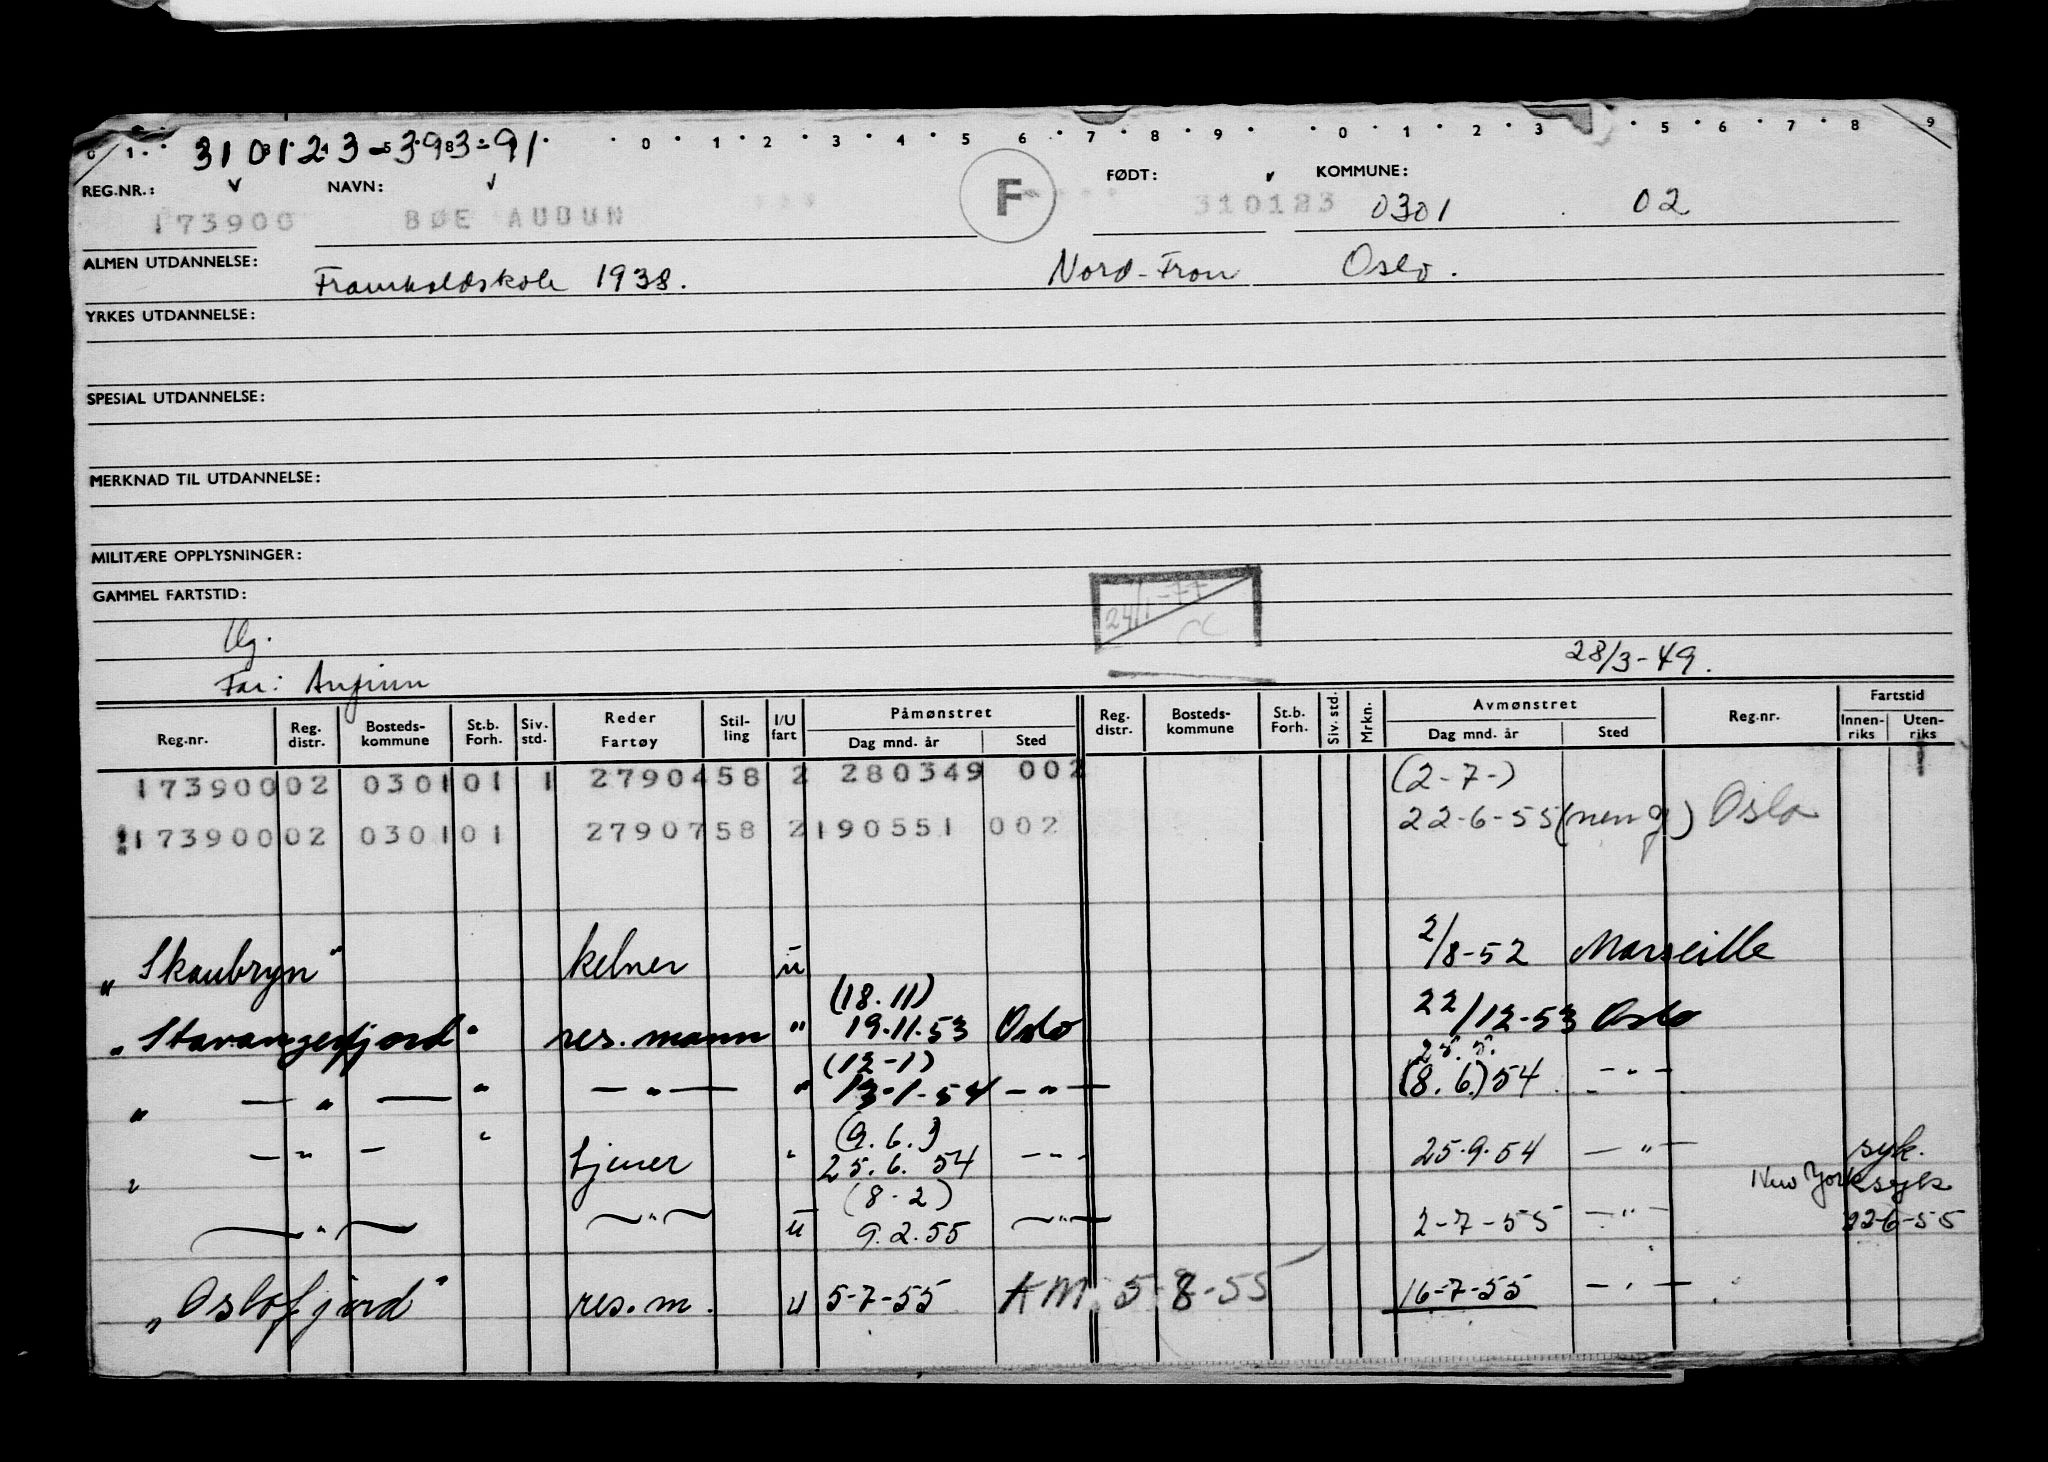 0 1 0 1 2 3 4 5 6 7 8 9 0 1 2 3 5 6 7 8 9
310123-393-91
REG.NR.: NAVN: F FØDT: KOMMUNE:
173900 BØE AUDUN 310123 0301 02
ALMEN UTDANNELSE: Framhaldskole 1938. Nord-Fron Oslo.
YRKES UTDANNELSE:
SPESIAL UTDANNELSE:
MERKNAD TIL UTDANNELSE:
MILITÆRE OPPLYSNINGER:
GAMMEL FARTSTID:
24/1-77
Ug.
28/3-49.
Far: Anfinn
Reg.nr. Reg. distr. Bosteds-kommune St.b. Forh. Siv. std. Reder Fartøy Stil-ling I/U fart Påmønstret Dag mnd. år Sted Reg. distr. Bosteds-kommune St.b. Forh. Siv. std. Mrkn. Avmønstret Dag mnd. år Sted Reg.nr. Fartstid Innen-riks Uten-riks
173900 02 0301 01 1 27904 58 2 280349 002 (2-7-)
173900 02 0301 01 27907 58 2 190551 002 22-6-55 Oslo
"Skaubryn" kelner u 2/8-52 Marseille
(18.11)
"Stavangerfjord" res. mann " 19.11.53 Oslo 22/12-53 Oslo
(12-1) 25.5.
" — " — " — " — " 13-1-54 — " — (8.6.) 54 — " —
(9.6.)
" — " — " tjener " 25.6. 54 — " — 25.9.54 — " — syk.
(8-2) New York syk
— " — — " — u 9.2.55 — " — 2-7-55 — " — 22-6-55
"Oslofjord" res. m. u 5-7-55 AM. 5-8-55 16-7-55 — " —